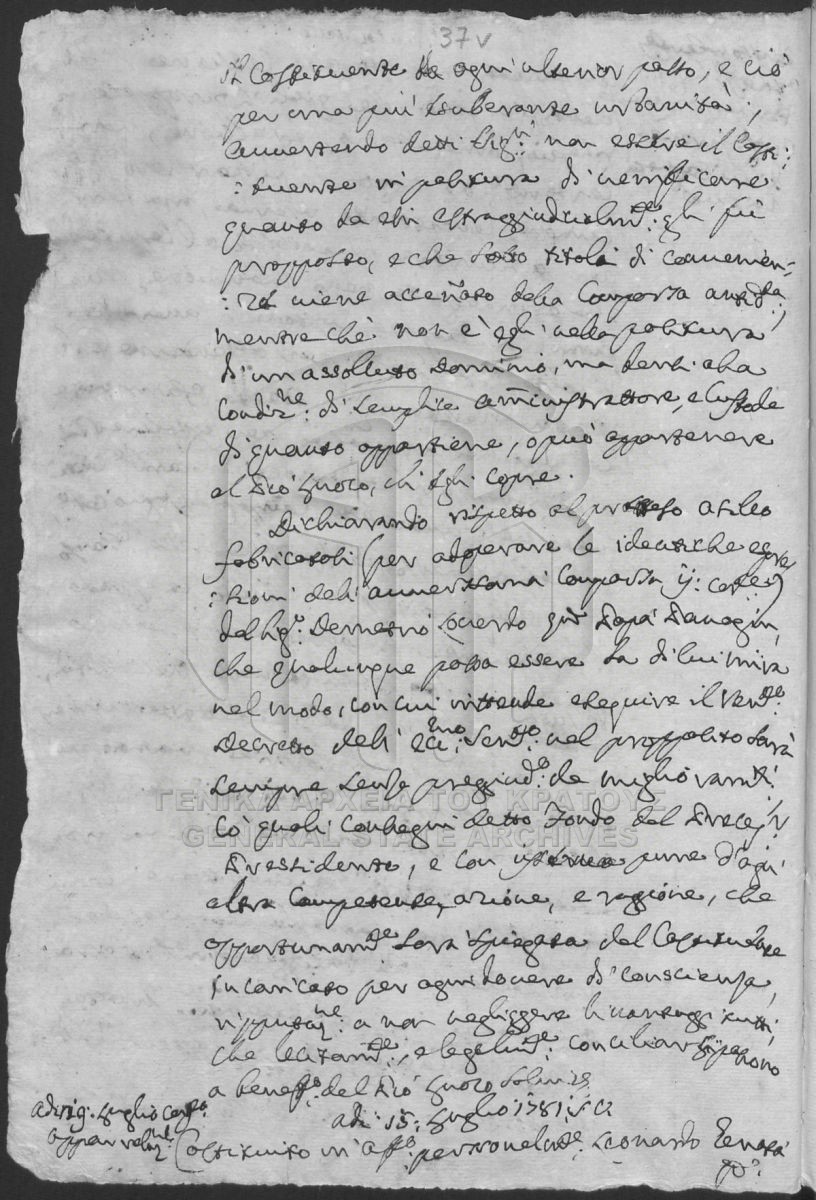 37v
il Costituente da ogni ulterior passo, e ciò
per una più esuberante urbanità,
avvertendo detti Sig.ri non essere il Costi:
:tuente in positura di verificare
quanto da essi estraggiudicialm.te: gli fu
propposto, e che sotto titolo di convenien:
:za viene accen̄ato della Comparsa antid.ta,
mentre chè non è egli nella positura
di un assolluto Dominio, ma bensì alla
Condiz.ne: di semplice am̄inistrattore, e Custode
di quanto appartiene, o può appartenere
al Pio Luoco, ch'egli copre.
Dichiarando rispetto al preteso Asilo
fabricatoli (per adoperare le identiche espres
:sioni della avversaria Comparsa
del Sig.r Demetrio quon Papà
che qualunque possa essere la di lui mira
nel modo, con cui intende eseguire il Vener.do
Decretto dell' Ecc.mo Senato: nel propposito sarà
sempre senza preggiud.o: de miglioram.ti
co' quali consegnì detto Fondo dal Preces:r
Pressidente, e con pure d'ogni
altra Competenza, azione, e raggione, che
opportunam.te sarà spiegata dal Costituente
incaricato per ogni dovere di conscienza,
ripputaz.ne: a non negliggere li vantaggi tutti,
che lecitam.te:, e legalm.te: conciliar si possono
a benef.o: del Pio Luoco
adì: 15: Luglio 1781: S: V:
adì 19: Luglio
Costituito in personalm.te: Leonardo